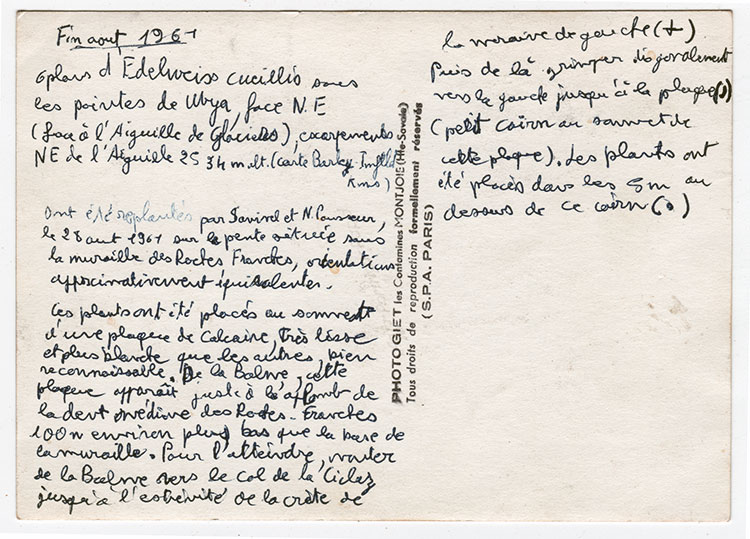 Fin aout 1961
6 plans d'Edelweiss cueillis sous
les pointes de Ubya, face N.E
(face à l'Aiguille de Glaciers), escarpements
NE de l'Aiguille 2534 m.lt. (carte Barbey-Imfeld
Kurz)
Ont été replantés par et N.
le 28 aout 1961 sur la pente située sous
la muraille des Roches Franches, orientations
approximativement équivalentes.
Ces plants ont été placés au sommet
d'une plaque de Calcaire, très lisse
et plus blanche que les autres, bien
reconnaissable. De la Balme, cette
plaque apparaît juste à l'aplomb de
la dent médiane des Roches-Franches
100m environ plus bas que la base de
la muraille. Pour l'atteindre, monter
de la Balme vers le col de la Ciclaz
jusqu'à l'extrémité de la crète de
la moraine de gauche (+)
Puis de là grimper diagonalement
vers la gauche jusqu'à la plaque
(petit cairn au sommet de
cette plaque). Les plants ont
été placés dans les 5m au
dessous de ce cairn
PHOTO GIET les Contamines MONTJOIE (Hte-Savoie)
Tous droits de reproduction formellement réservés
(S.P.A. PARIS)